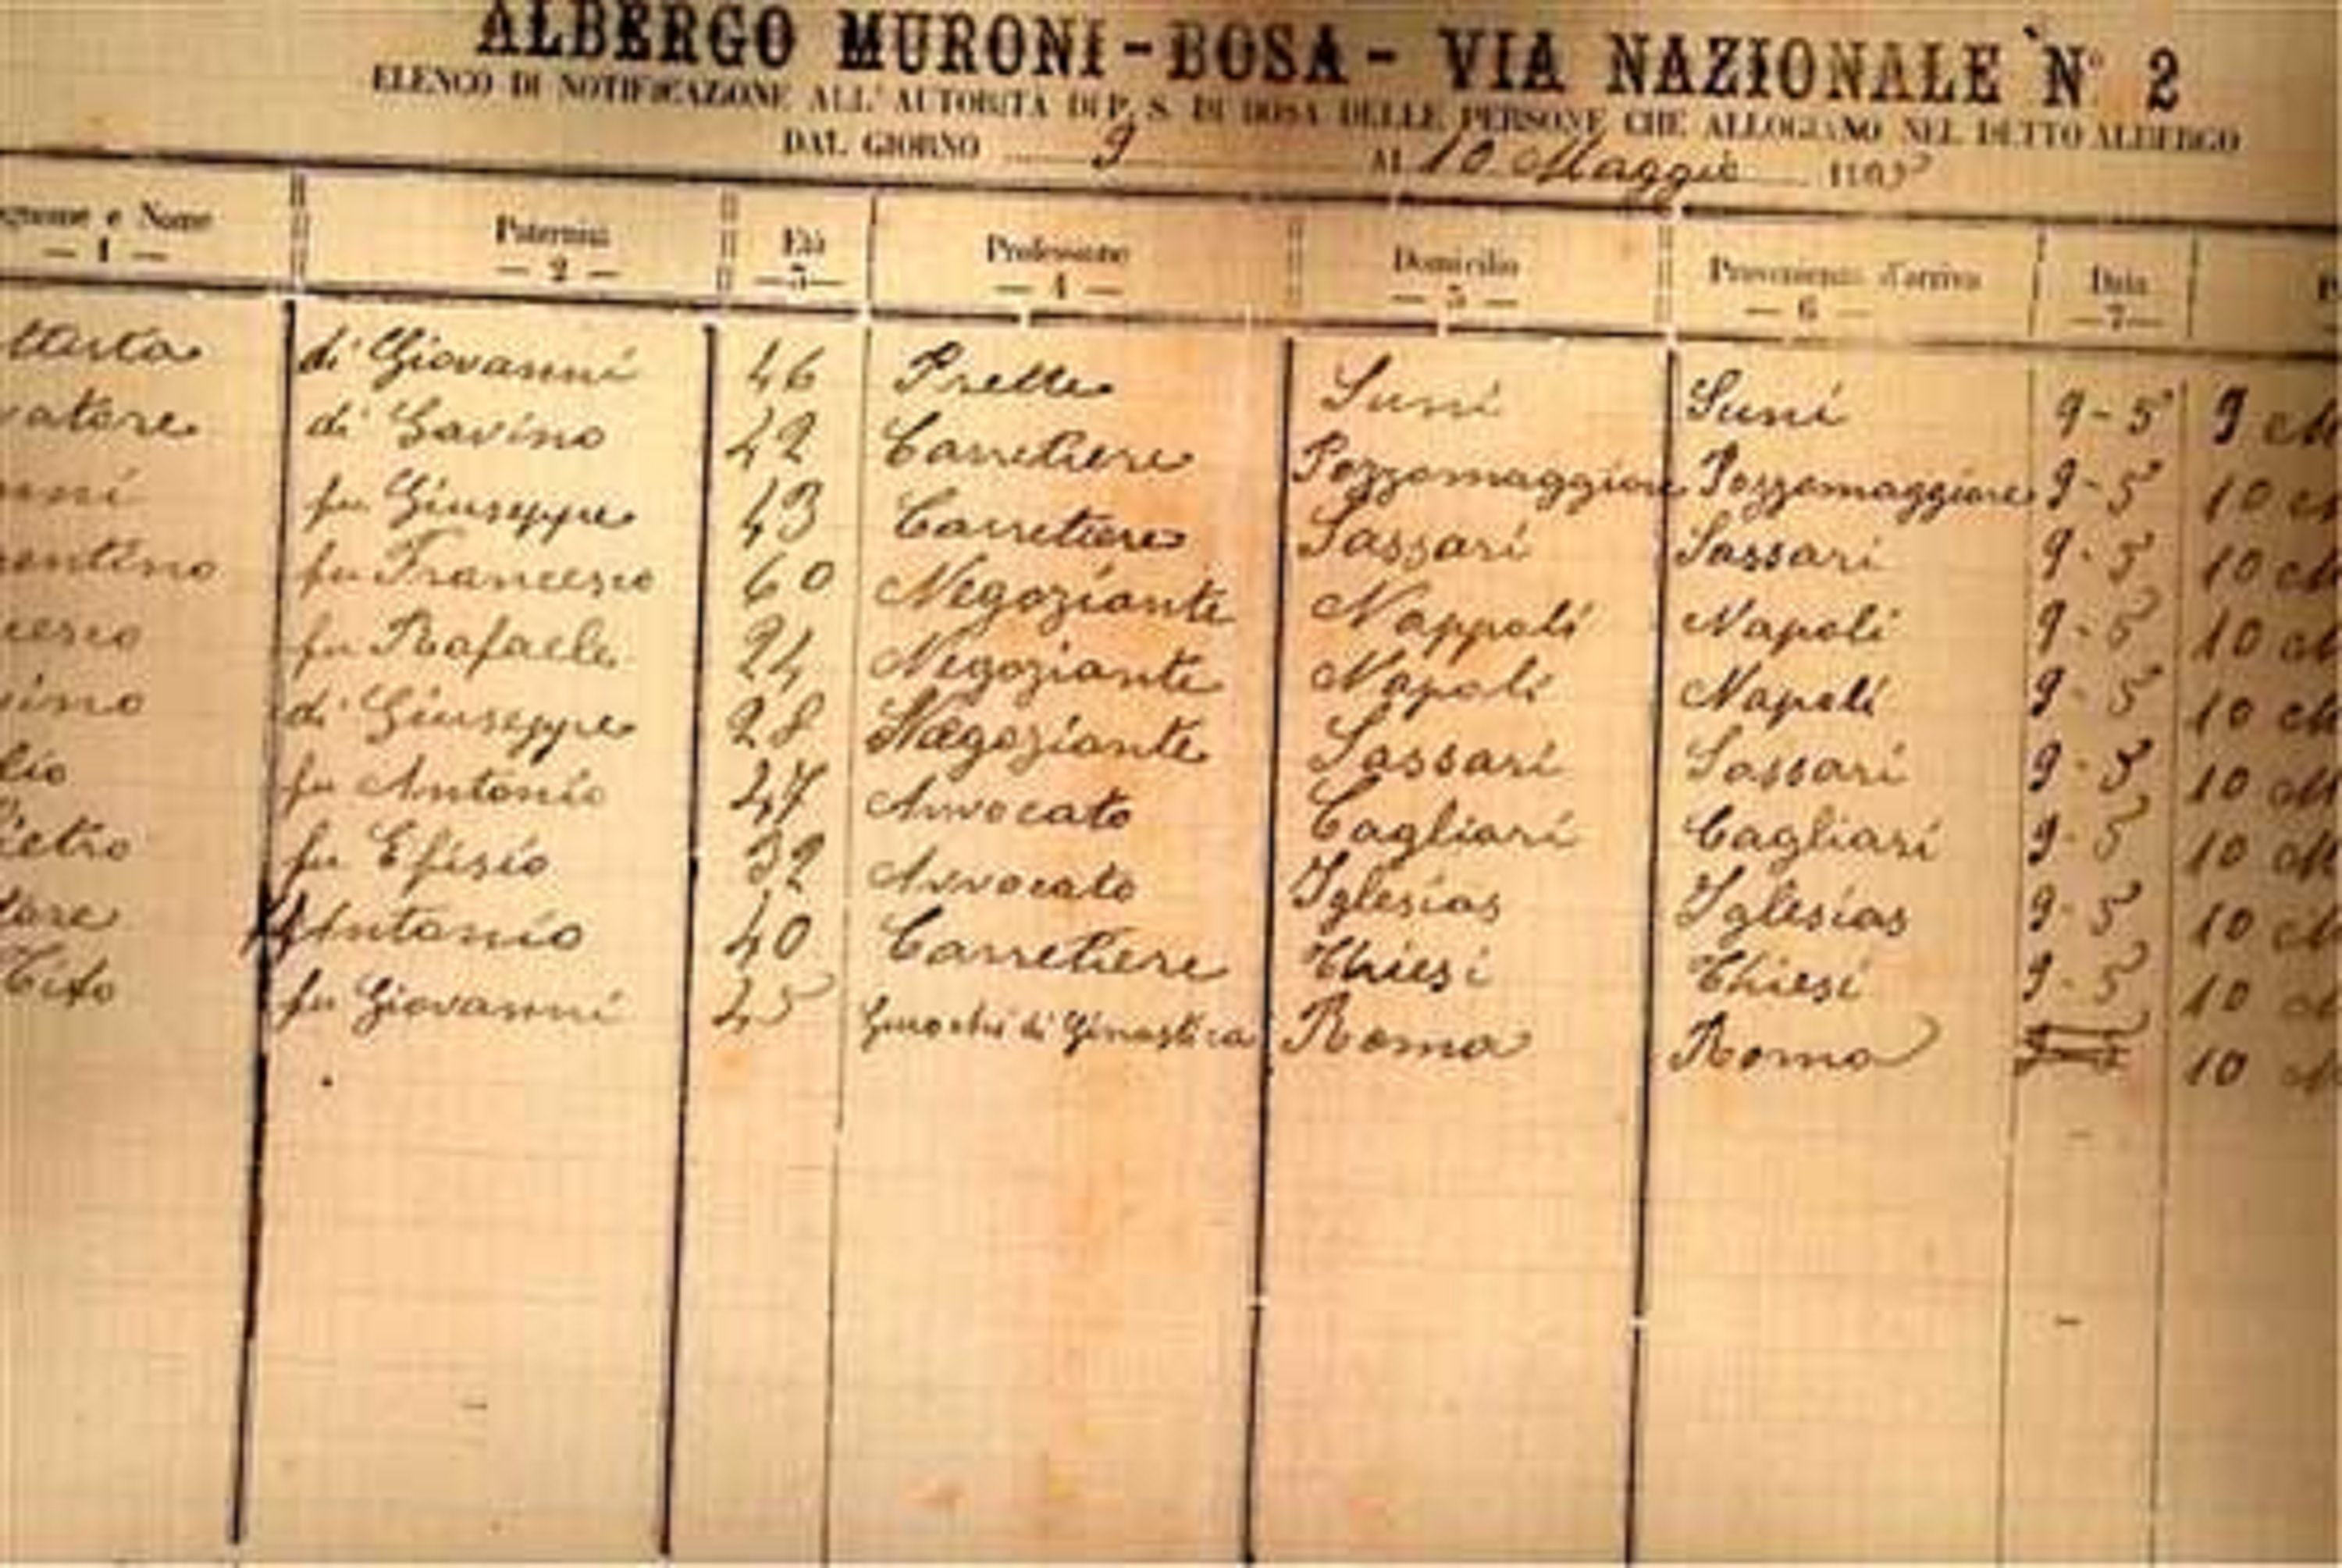 ALBERGO MURONI - BOSA - VIA NAZIONALE N° 2
ELENCO DI NOTIFICAZIONE ALL' AUTORITA DI P. S. DI BOSA DELLE PERSONE CHE ALLOGIANO NEL DETTO ALBERGO
DAL GIORNO 9 AL 10 Maggio
gnome e Nome Paternità Età Professione Domicilio Provenienza d'arrivo Data
— 1 — — 2 — — 3 — — 4 — — 5 — — 6 — — 7 —
ttista di Giovanni 46 Prette Suni Suni 9 - 5 9 M
vatore di Gavino 42 Carretiere Pozzomaggiore Pozzomaggiore 9 - 5 10 M
nni fu Giuseppe 43 Carretiere Sassari Sassari 9 - 5 10 M
rentino fu Francesco 60 Negoziante Nappoli Napoli 9 - 5 10 M
cesco fu Rafaele 24 Negoziante Napoli Napoli 9 - 5 10 M
sino di Giuseppe 28 Negoziante Sassari Sassari 9 - 5 10 M
lio fu Antonio 47 Avvocato Cagliari Cagliari 9 - 5 10 M
Pietro fu Efisio 32 Avvocato Iglesias Iglesias 9 - 5 10 M
tore Antonio 40 Carretiere Thiesi Thiesi 9 - 5 10 M
Tito fu Giovanni 25 Giuochi di Ginastica Roma Roma 10 M